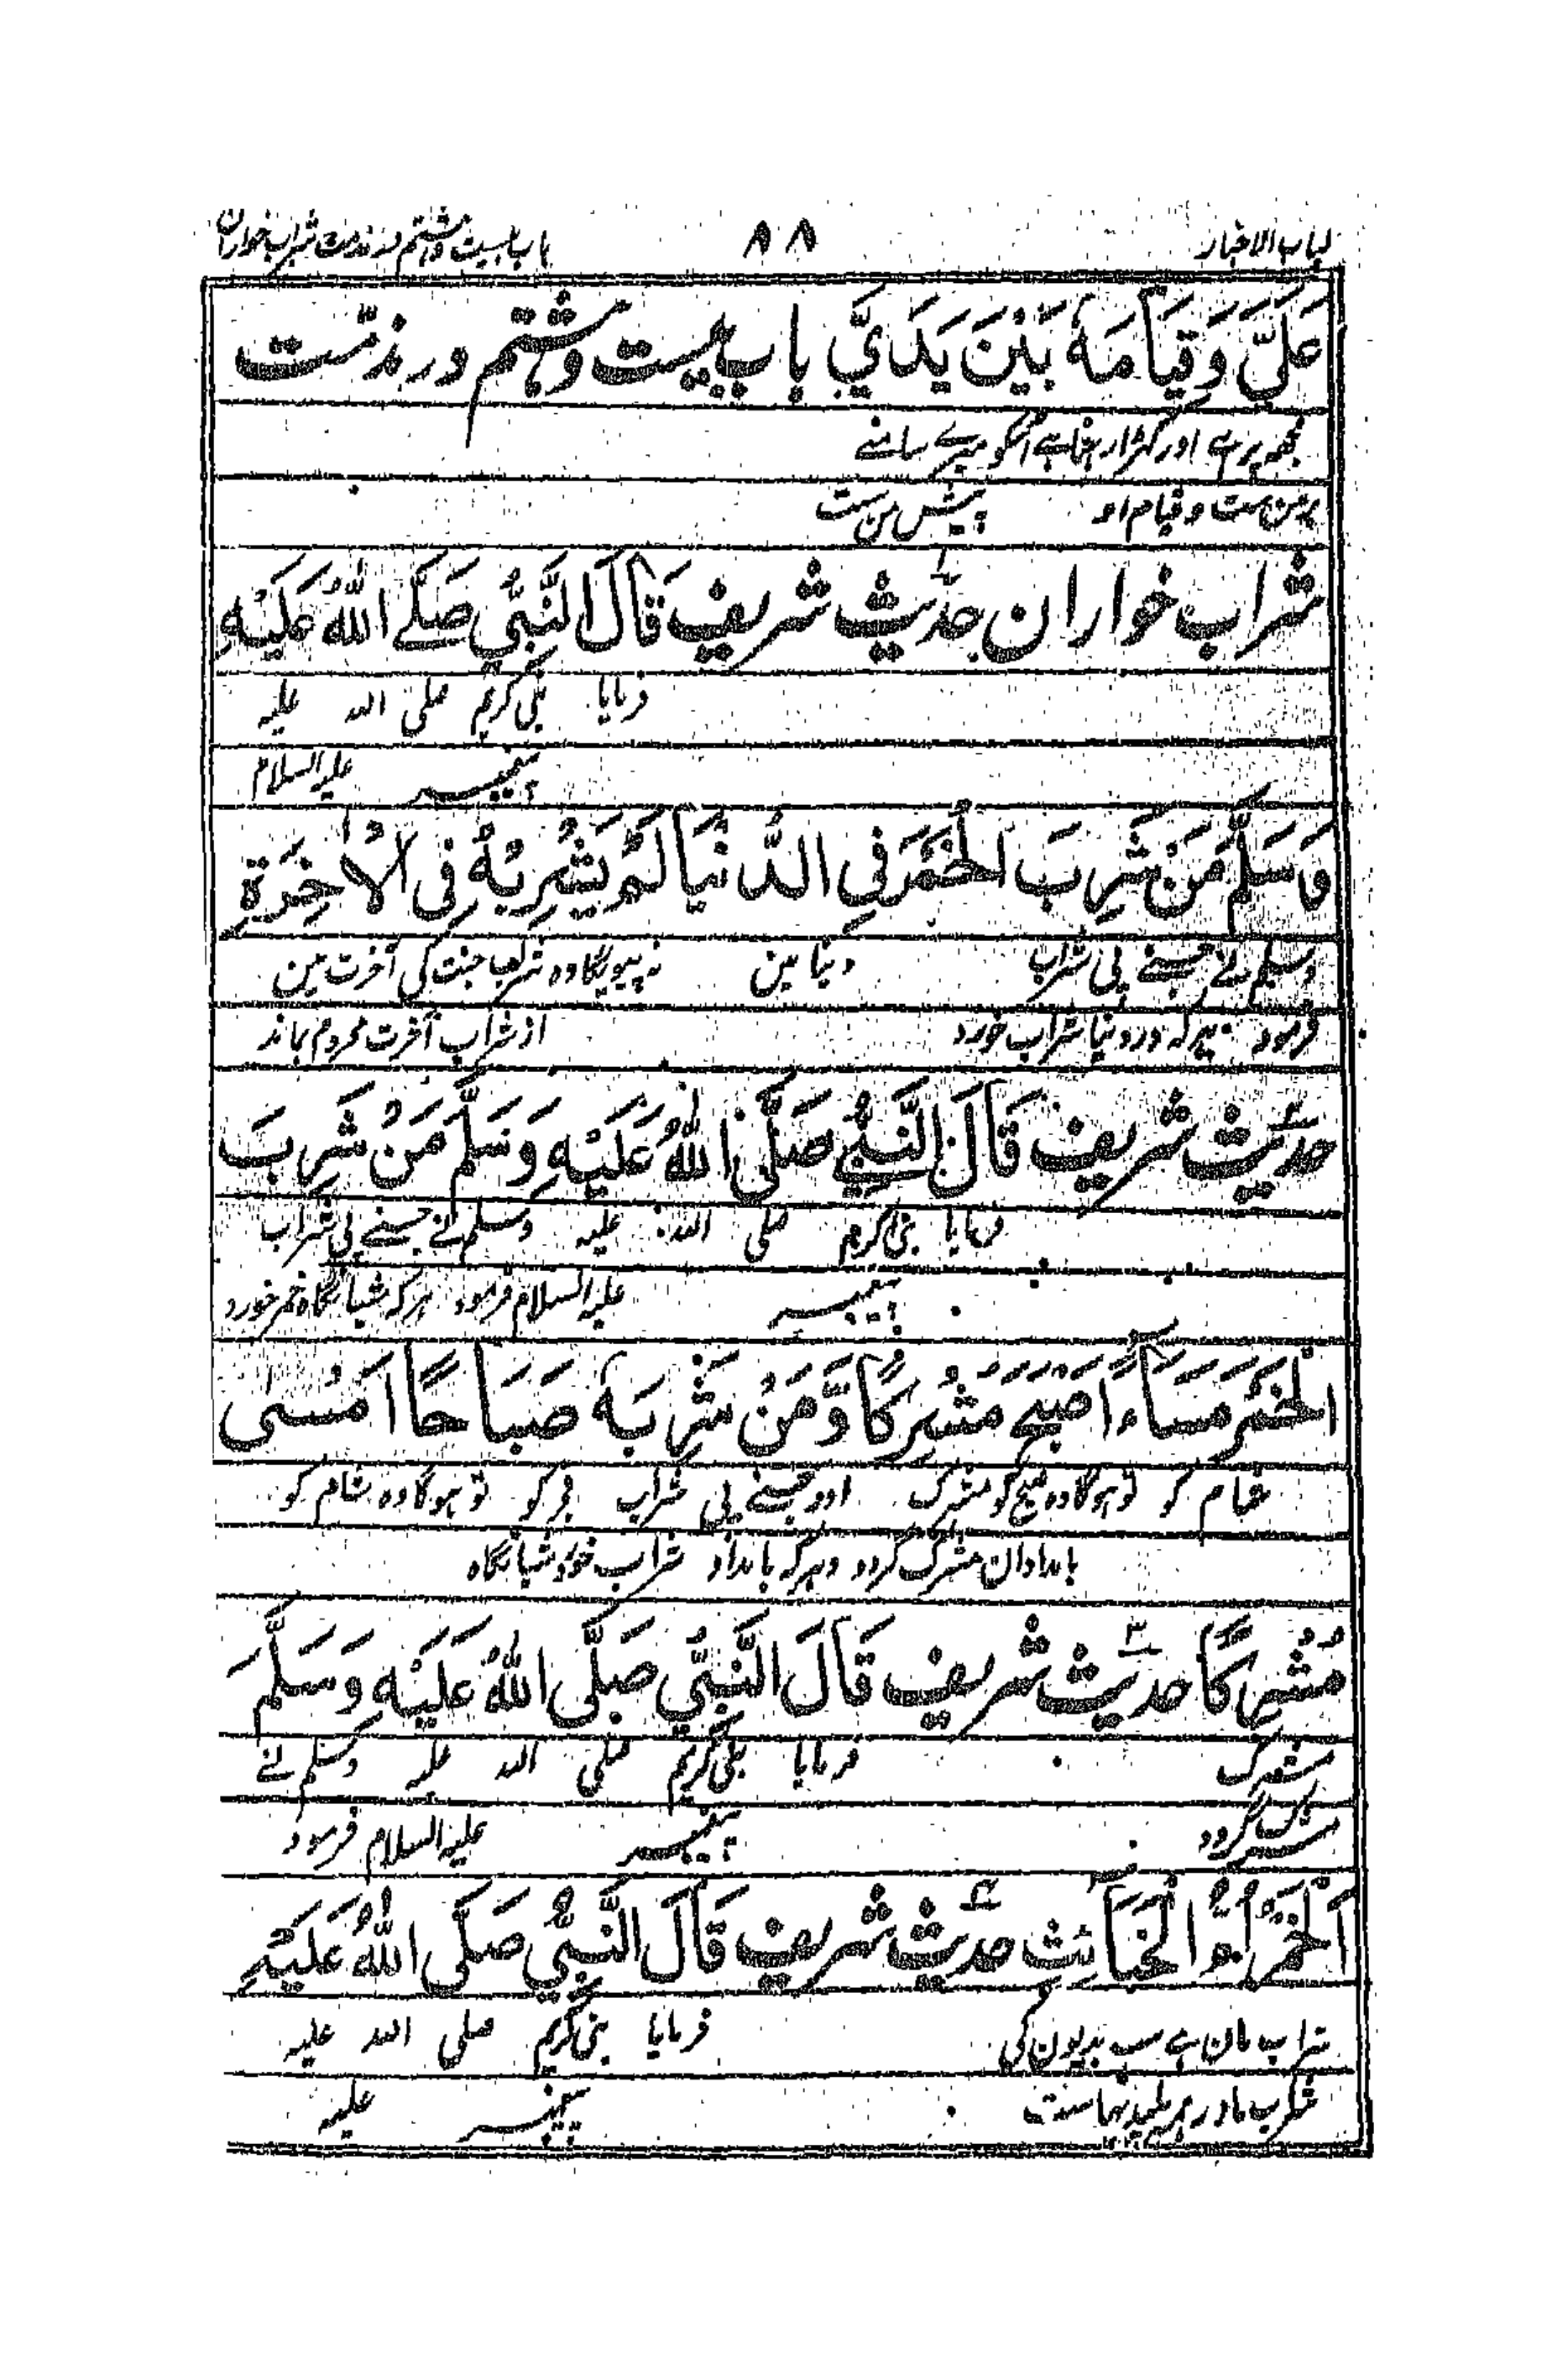 لباب الاخبار ۸۸ باب بیست و هشتم در مذمت شراب خواران
عَلَیَّ وَقِیَامَهٗ بَیْنَ یَدَایَّ باب بیست وہشتم در مذمّت
مجھ پر ہے اور کھڑا رہنا ہے اسکو میرے سامنے
بر من ست و قیام او پیش من ست
شراب خواران حدیث شریف ۱ قَالَ النَّبِیُّ صَلَّے اللّٰهُ عَلَیْهِ
فرمایا نبی کریم صلی اللہ علیہ
پیغمبر علیہ السلام
وَسَلَّمَ مَنْ شَرِبَ الْخَمْرَ فِی الدُّنْیَا لَمْ یَشْرِبْهُ فِی الْاٰخِرَةِ
وسلم نے جسنے پی شراب دنیا مین نہ پیویگا وہ شراب جنت کی آخرت مین
فرمود ہر کہ در دنیا شراب خورد از شراب آخرت محروم بماند
حدیث شریف قَالَ النَّبِیُّ صَلَّی اللّٰهُ عَلَیْهِ وَسَلَّمَ مَنْ شَرِبَ
فرمایا نبی کریم صلی اللہ علیہ وسلم نے جسنے پی شراب
پیغمبر علیہ السلام فرمود ہر کہ شبانگاہ خمر خورد
الْخَمْرَ مَسَاءً اَصْبَحَ مُشْرِكًا وَّمَنْ شَرِبَهٗ صَبَاحًا اَمْسٰی
شام کو تو ہوگا وہ صبح کو مشرک اور جسنے پی شراب فجر کو تو ہوگا وہ شام کو
بامدادان مشرک گردد وہر کہ بامداد شراب خورد شبانگاہ
مُشْرِكًا حدیث شریف ۳ قَالَ النَّبِیُّ صَلَّی اللّٰهُ عَلَیْهِ وَسَلَّمَ
مشرک فرمایا نبی کریم صلی اللہ علیہ وسلم نے
مشرک گردد پیغمبر علیہ السلام فرمود
اَلْخَمْرُ اُمُّ الْخَبَآئِثِ حدیث شریف ۴ قَالَ النَّبِیُّ صَلَّی اللّٰهُ عَلَیْهِ
شراب مان ہے سب بدیون کی فرمایا نبی کریم صلی اللہ علیہ
شراب مادر ہر پلیدیہاست پیغمبر علیہ